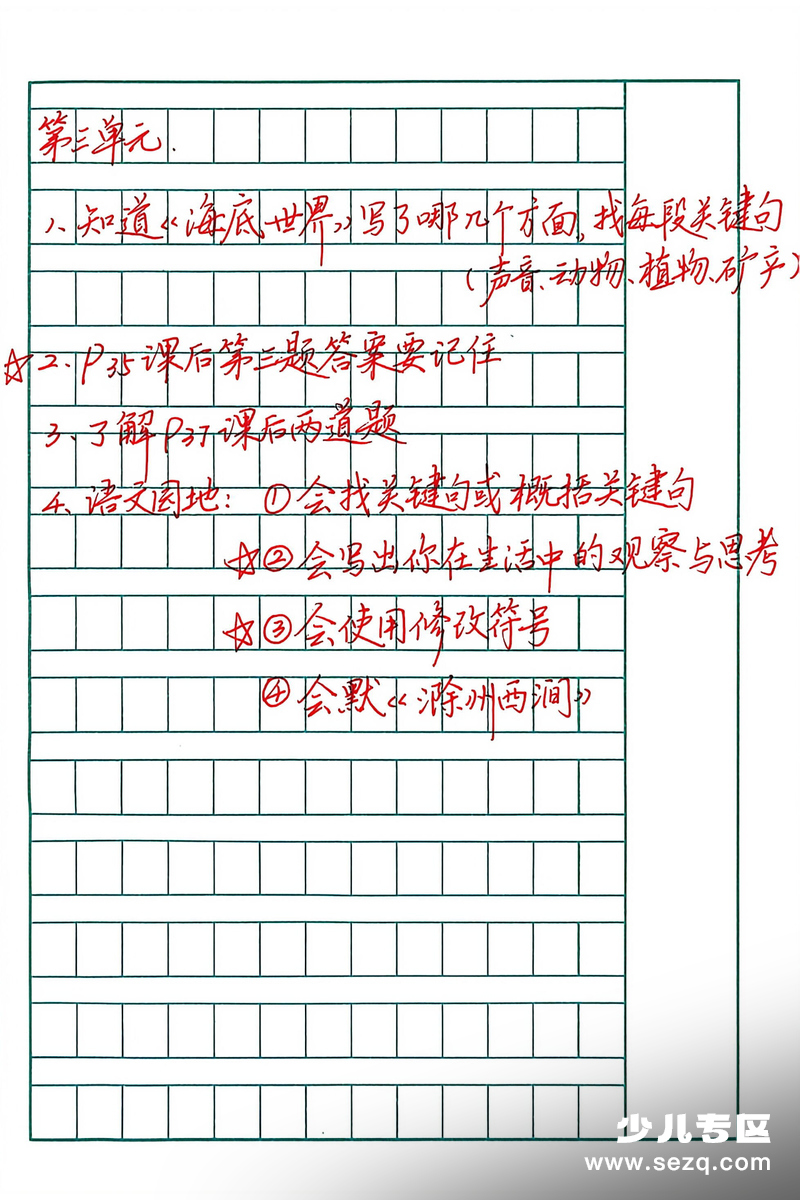 第三单元.
1、知道《海底世界》写了哪几个方面,找每段关键句
(声音、动物、植物、矿产)
☆2、P35课后第三题答案要记住
3、了解P37课后两道题
4、语文园地：①会找关键句或概括关键句
☆②会写出你在生活中的观察与思考
☆③会使用修改符号
④会默《滁州西涧》
少儿专区
www.sezq.com